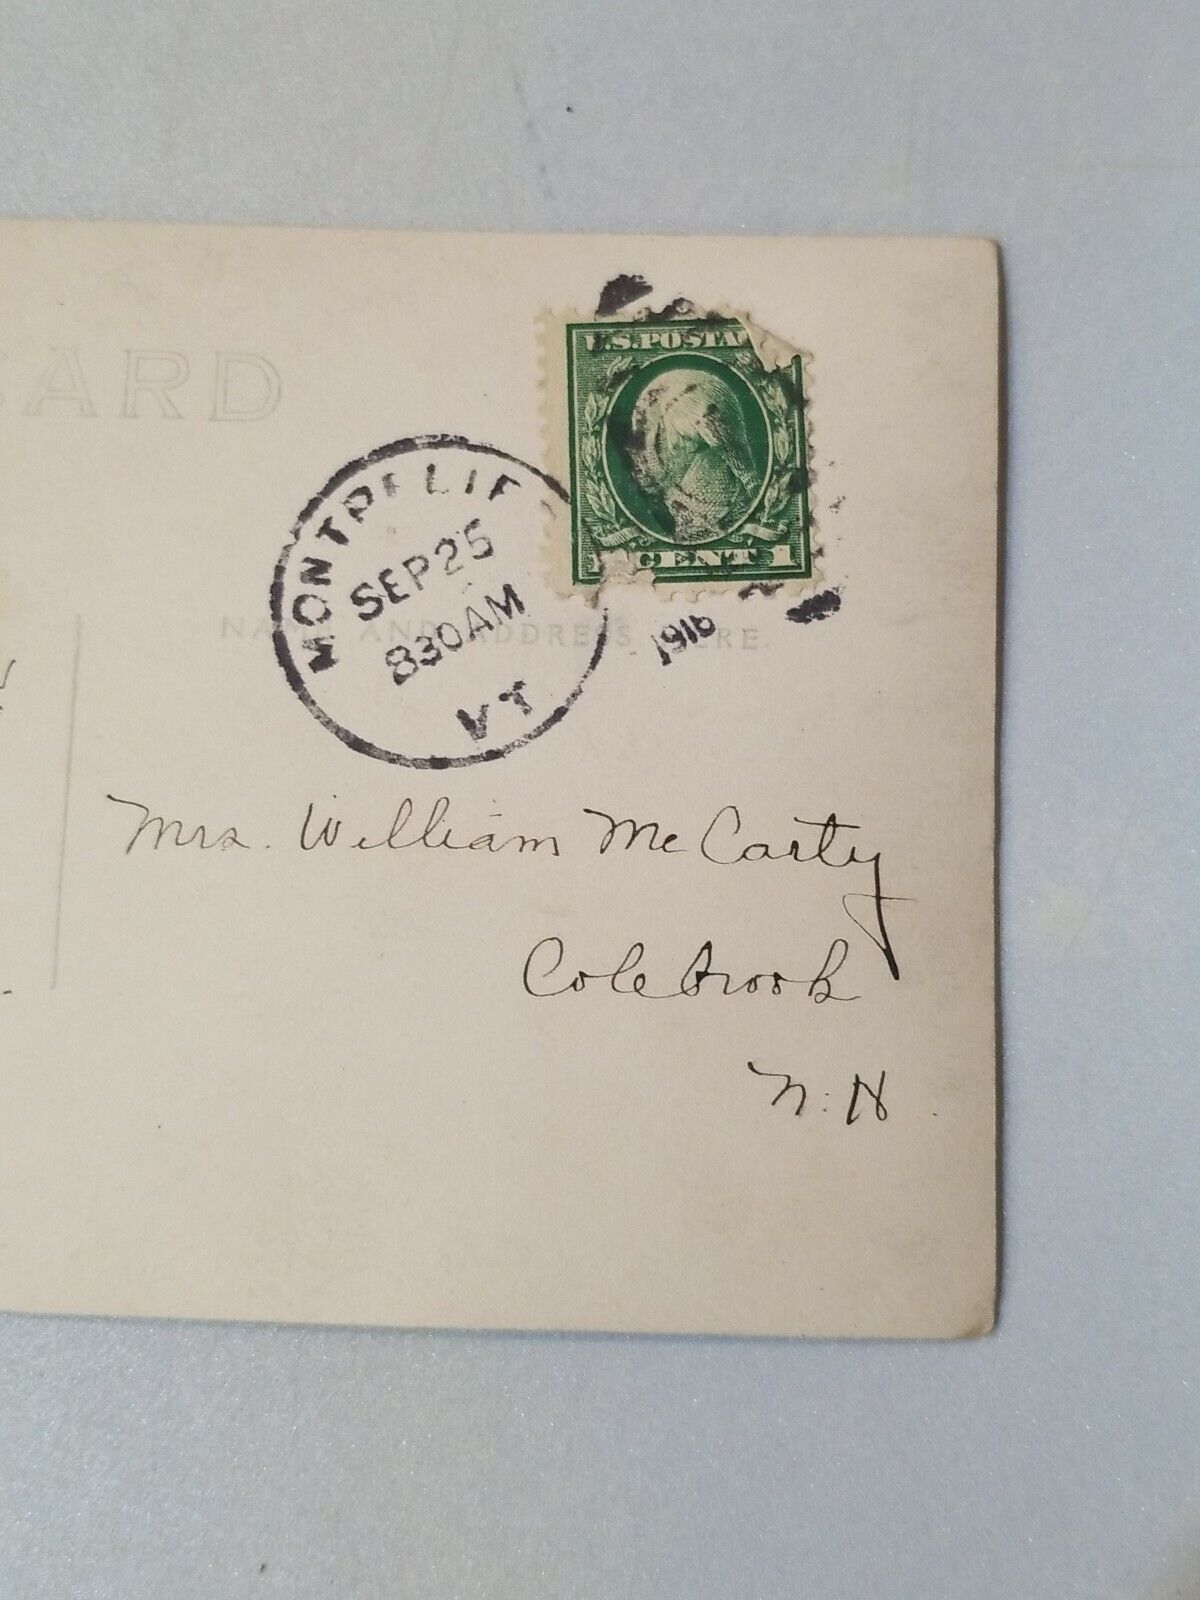 ARD
U.S.POSTA
CENT 1
MONTPELIE
SEP 25
830AM
VT
1916
NAME AND ADDRESS HERE.
Mrs. William McCarty
Colebrook
N. H.